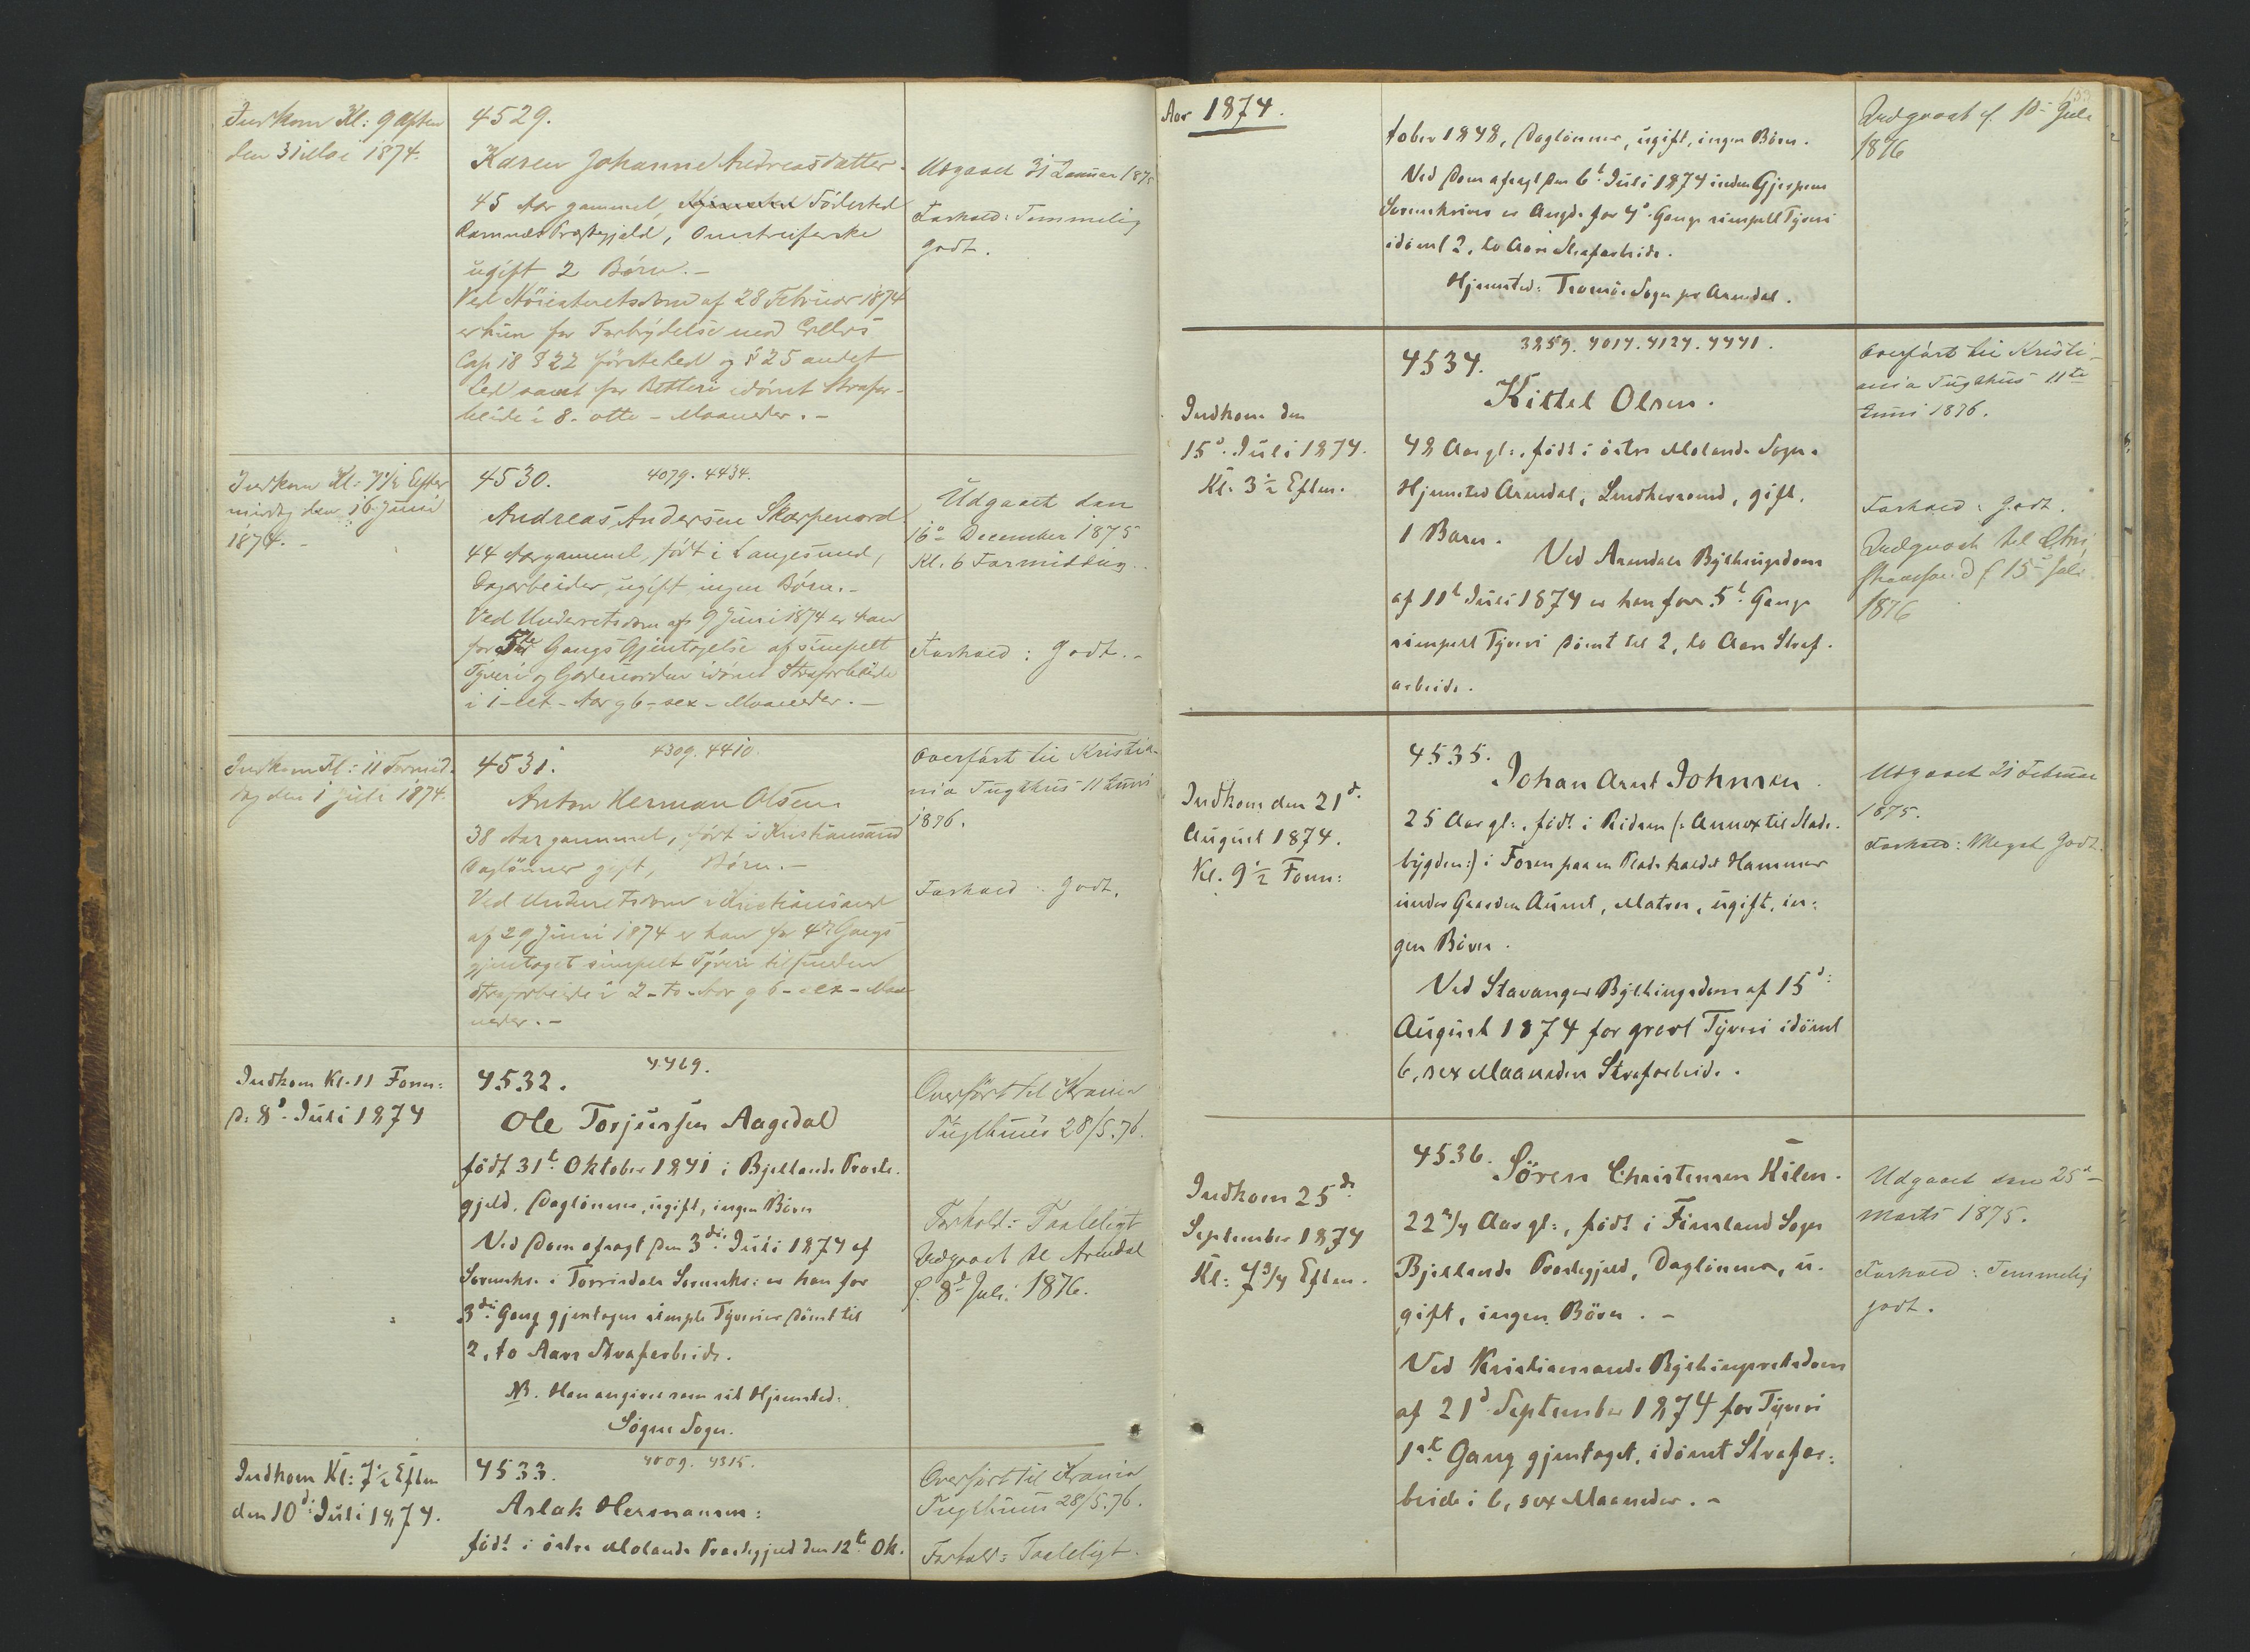 Indkom Kl: 9 Aften
den 31 Mai 1874.
4529.
Karen Johanne Andreasdatter.
45 Aar gammel, Födested
Ramnæs Præstegjeld, Omstreiferske
ugift 2 Börn. –
Ved Höiesteretsdom af 28 Februar 1874
er hun for Forbrydelse mod Crlbvs
Cap 18 § 22 förste Led og § 25 andet
Led samt for Betleri idömt Strafar-
beide i 8 - otte - Maaneder. –
Udgaaet 31 Januar 1875
Forhold: Temmelig
godt.
Indkom Kl: 7 1/2 Efter
middag den 16 Juni
1874. –
4530. 4079. 4434.
Andreas Andersen Skarpenord
44 Aar gammel, födt i Langesund,
Dagarbeider, ugift ingen Börn. –
Ved Underretsdom af 9 Juni 1874 er han
for 5te Gangs Gjentagelse af simpelt
Tyveri og Gadeuorden idömt Strafarbeide
i 1 - et - Aar og 6 - sex - Maaneder. –
Udgaaet den
16de December 1875
Kl. 6 Formiddag.
Forhold: Godt. –
Indkom Kl: 11 Formid-
dag den 1 Juli 1874.
4531. 4309. 4410.
Anton Herman Olsen
38 Aar gammel, födt i Kristiansand
Daglönner gift, Börn. –
Ved Underretsdom i Kristiansand
af 29 Juni 1874 er han for 4de Gangs
gjentaget simpelt Tyveri tilfunden
Strafarbeide i 2 - to - Aar og 6 - sex - Maa-
neder. –
Overfört til Kristia-
nia Tugthus 11 Juni
1876.
Forhold: Godt.
Indkom Kl. 11 Form:
d: 8de Juli 1874
4532. 4469.
Ole Torjussen Aagedal
födt 31te Oktober 1841 i Bjellands Præste-
gjeld, Daglönner, ugift, ingen Börn
Ved Dom afsagt den 3die Juli 1874 af
Sorenskr. i Torrisdals Sorenskr: er han for
3die Gang gjentagen simple Tyverier dömt til
2, to Aars Strafarbeide.
NB. Han angiver som sit Hjemsted:
Sögne Sogn.
Overfört til Krania
Tugthuus 28/5. 76.
Forhold: Taaleligt
Udgaaet til Arendal
f. 8de Juli 1876.
Indkom Kl: 7 1/2 Eftm
den 10de Juli 1874.
4533. 4009. 4315.
Aslak Hermansen:
födt i östre Molands Præstegjeld den 12te Ok-
Overfört til Krania
Tugthuus 28/5. 76.
Forhold: Taaleligt.
153
Aar 1874.
tober 1848, Daglönner, ugift, ingen Börn.
Ved Dom afsagt den 6te Juli 1874 inden Gjerpens
Sorenskriveri er Angd. for 4de Gangs simpelt Tyveri
idömt 2, to Aars Strafarbeide.
Hjemsted: Tromöe Sogn pr Arendal.
Udgaaet f. 10de Juli
1876
Indkom den
15de Juli 1874.
Kl. 3 1/2 Eftm.
4534. 3859. 4014. 4124. 4441.
Kittel Olsen.
48 Aar gl:, födt i östre Molands Sogn.
Hjemsted Arendal, gift,
1 Barn.
Ved Arendals Bythingsdom
af 11te Juli 1874 er han for 5te Gangs
simpelt Tyveri dömt til 2, to Aars Straf-
arbeide.
Overfört til Kristi-
ania Tugthus 11te
Juni 1876.
Forhold: Godt.
Udgaaet til Chri
stianssand f 15de Juli
1876
Indkom den 21de
August 1874.
Kl. 9 1/2 Form:
4535.
Johan Arnt Johnsen.
25 Aar gl:, födt i Ridsen (: Annex til Stads-
bygden:) i Fosen paa en Plads kaldet Hammer
under Gaarden Aunet, Matros, ugift, in-
gen Börn.
Ved Stavanger Bythingsdom af 15de
August 1874 for grovt Tyveri idömt
6, sex Maaneders Strafarbeide.
Udgaaet 21 Februar
1875.
Forhold: Meget Godt.
Indkom 25de
September 1874
Kl: 7 3/4 Eftm.
4536. Sören Christensen Kilen.
22 3/4 Aar gl:, födt i Finsland Sogn
Bjellands Præstegjeld, Daglönner, u-
gift, ingen Börn. –
Ved Kristiansands Bythingsretsdom
af 21de September 1874 for Tyveri
1ste Gang gjentaget, idömt Strafar-
beide i 6, sex Maaneder. –
Udgaaet den 25de
Marts 1875.
Forhold: Temmelig
godt.